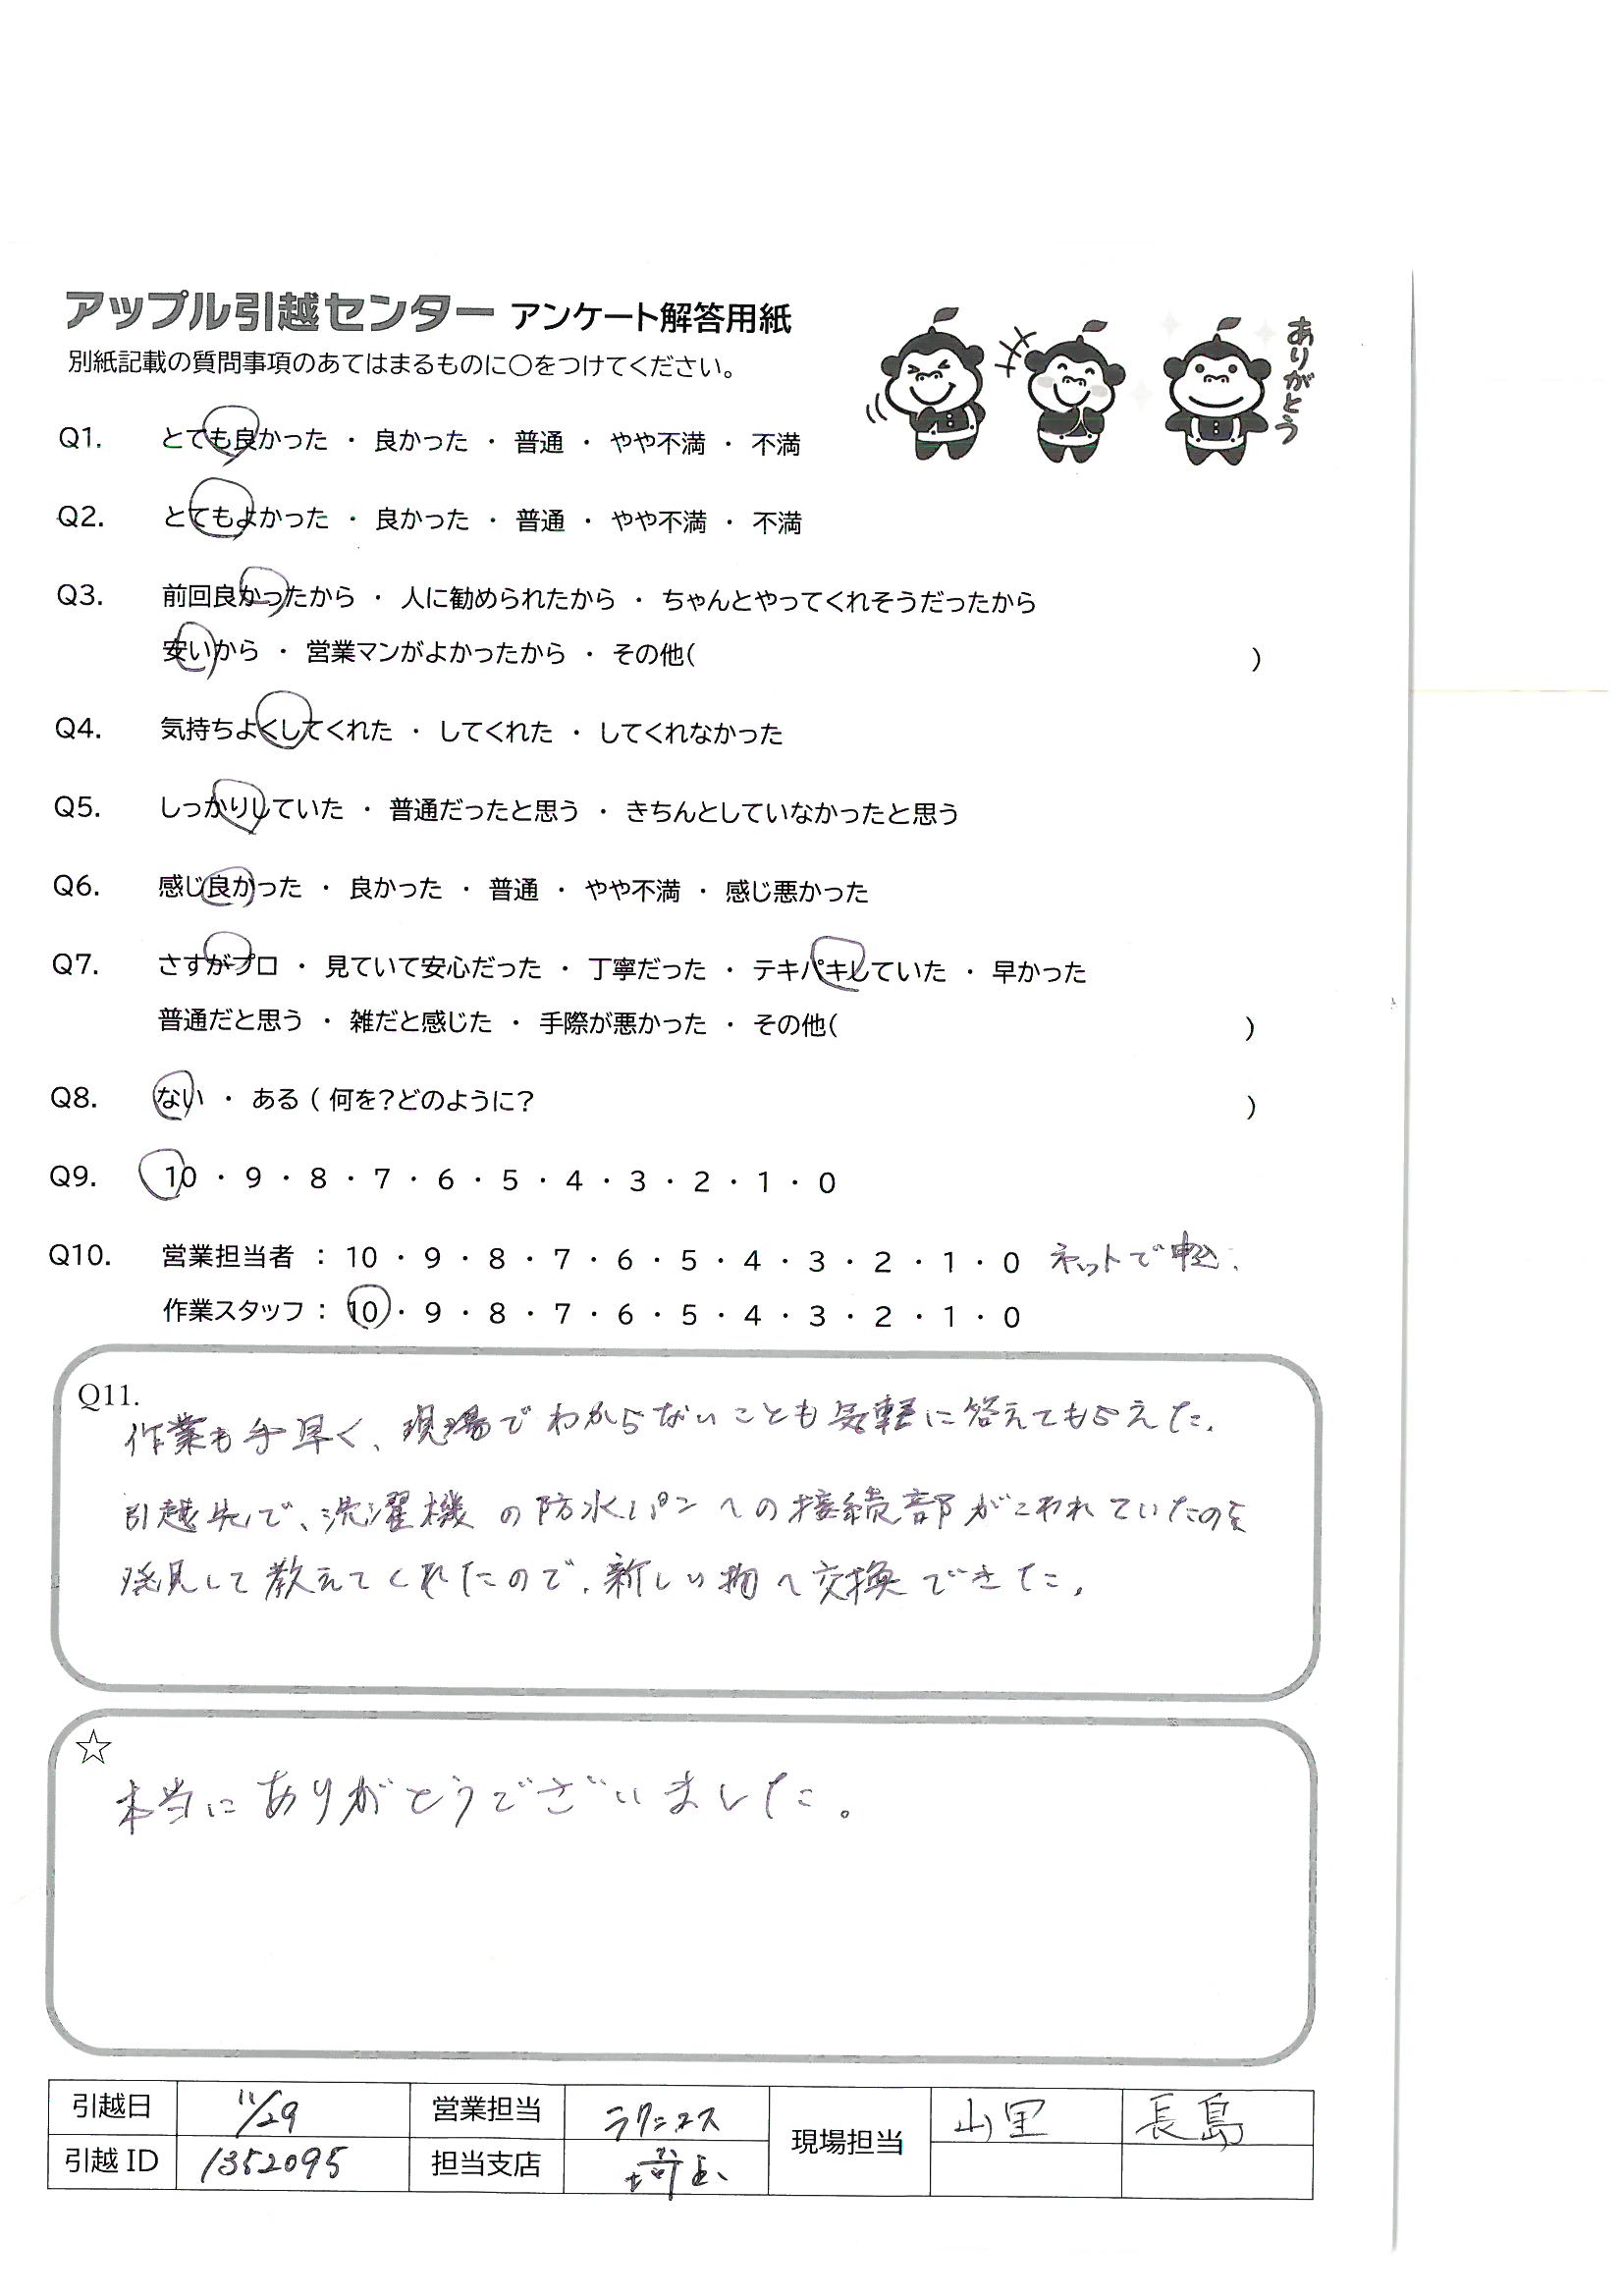 アップル引越センター アンケート解答用紙
別紙記載の質問事項のあてはまるものに○をつけてください。
ありがとう
Q1. とても良かった ・ 良かった ・ 普通 ・ やや不満 ・ 不満
Q2. とてもよかった ・ 良かった ・ 普通 ・ やや不満 ・ 不満
Q3. 前回良かったから ・ 人に勧められたから ・ ちゃんとやってくれそうだったから
安いから ・ 営業マンがよかったから ・ その他( )
Q4. 気持ちよくしてくれた ・ してくれた ・ してくれなかった
Q5. しっかりしていた ・ 普通だったと思う ・ きちんとしていなかったと思う
Q6. 感じ良かった ・ 良かった ・ 普通 ・ やや不満 ・ 感じ悪かった
Q7. さすがプロ ・ 見ていて安心だった ・ 丁寧だった ・ テキパキしていた ・ 早かった
普通だと思う ・ 雑だと感じた ・ 手際が悪かった ・ その他( )
Q8. ない ・ ある ( 何を?どのように? )
Q9. 10 ・ 9 ・ 8 ・ 7 ・ 6 ・ 5 ・ 4 ・ 3 ・ 2 ・ 1 ・ 0
Q10. 営業担当者 : 10 ・ 9 ・ 8 ・ 7 ・ 6 ・ 5 ・ 4 ・ 3 ・ 2 ・ 1 ・ 0 ネットで申込.
作業スタッフ : 10 ・ 9 ・ 8 ・ 7 ・ 6 ・ 5 ・ 4 ・ 3 ・ 2 ・ 1 ・ 0
Q11.
作業も手早く、現場でわからないことも気軽に答えてもらえた.
引越先で、洗濯機の防水パンへの接続部がこわれていたのを
発見して教えてくれたので、新しい物へ交換できた.
☆
本当にありがとうございました。
引越日 11/29 営業担当 現場担当 山里 長島
引越ID 1352095 担当支店 埼玉